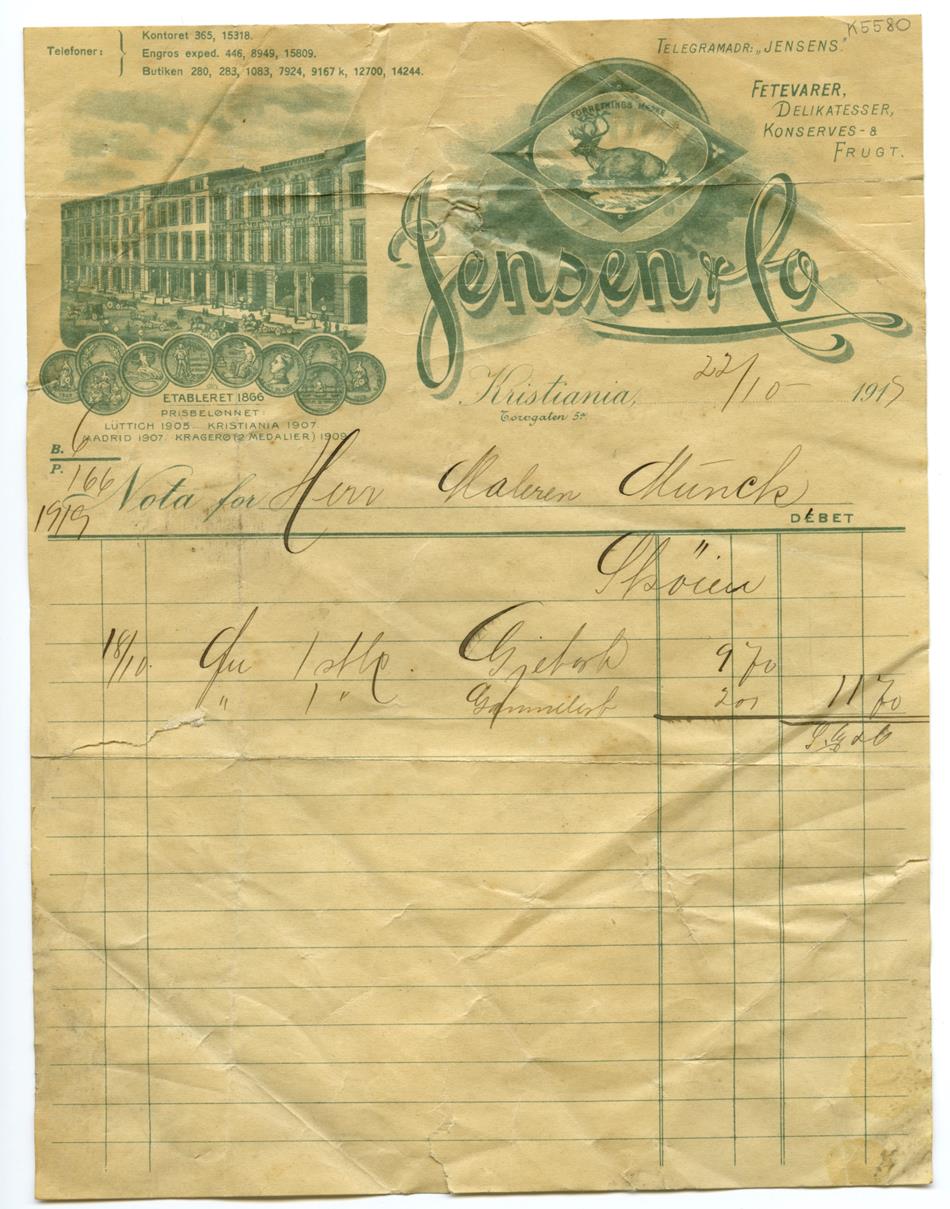 K5580
Telefoner:
Kontoret 365, 15318.
Engros exped. 446, 8949, 15809.
Butiken 280, 283, 1083, 7924, 9167 k, 12700, 14244.
TELEGRAMADR: „JENSENS."
FETEVARER,
DELIKATESSER,
KONSERVES- &
FRUGT.
FORRETNINGS MÆRKE
Jensen & Co
Kristiania, 22/10 - 1919
Torvgaten 5a
ETABLERET 1866
PRISBELØNNET:
LÜTTICH 1905. KRISTIANIA 1907.
MADRID 1907. KRAGERØ (2 MEDALIER) 1909
B. 6
P. 166
1919
Nota for Herr Maleren Munck
DEBET
Sköien
18/10. 1 stk. Gjetost 9 70
" 1 " Gammelost 2 00 11 70